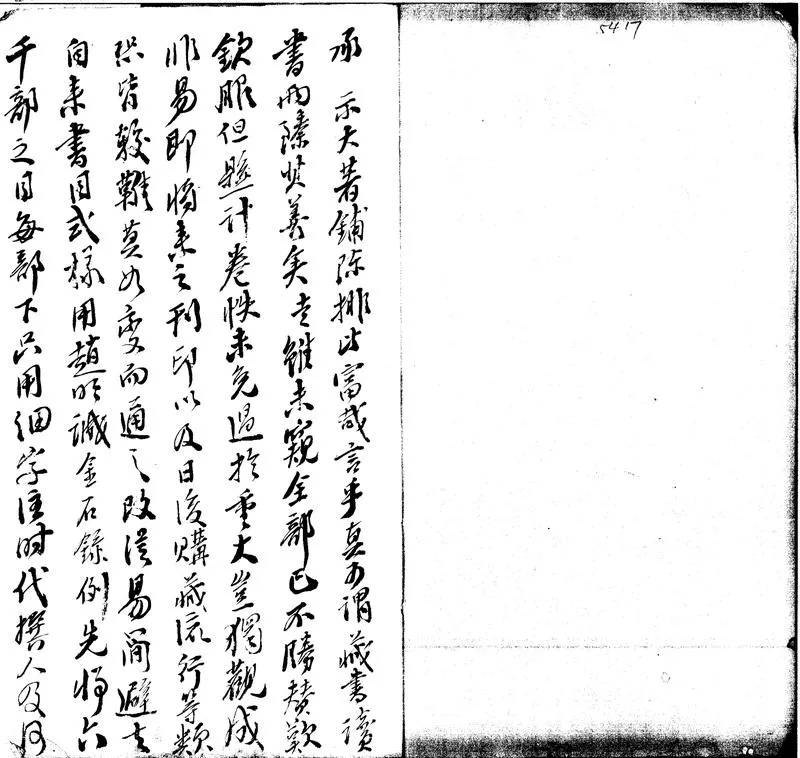 5417
承 示大著鋪陳排比富哉言乎真可謂藏書讀
書兩臻其美矣走雖未窺全部已不勝贊歎
欽服但懸計卷帙未免過於重大豈獨觀成
非易即將來之刊印以及日後購藏流行等類
恐皆較難莫如變而通之改從易簡避去
向來書目式樣用趙明誠金石錄例先將六
千部之目每部下只用細字注時代撰人及何